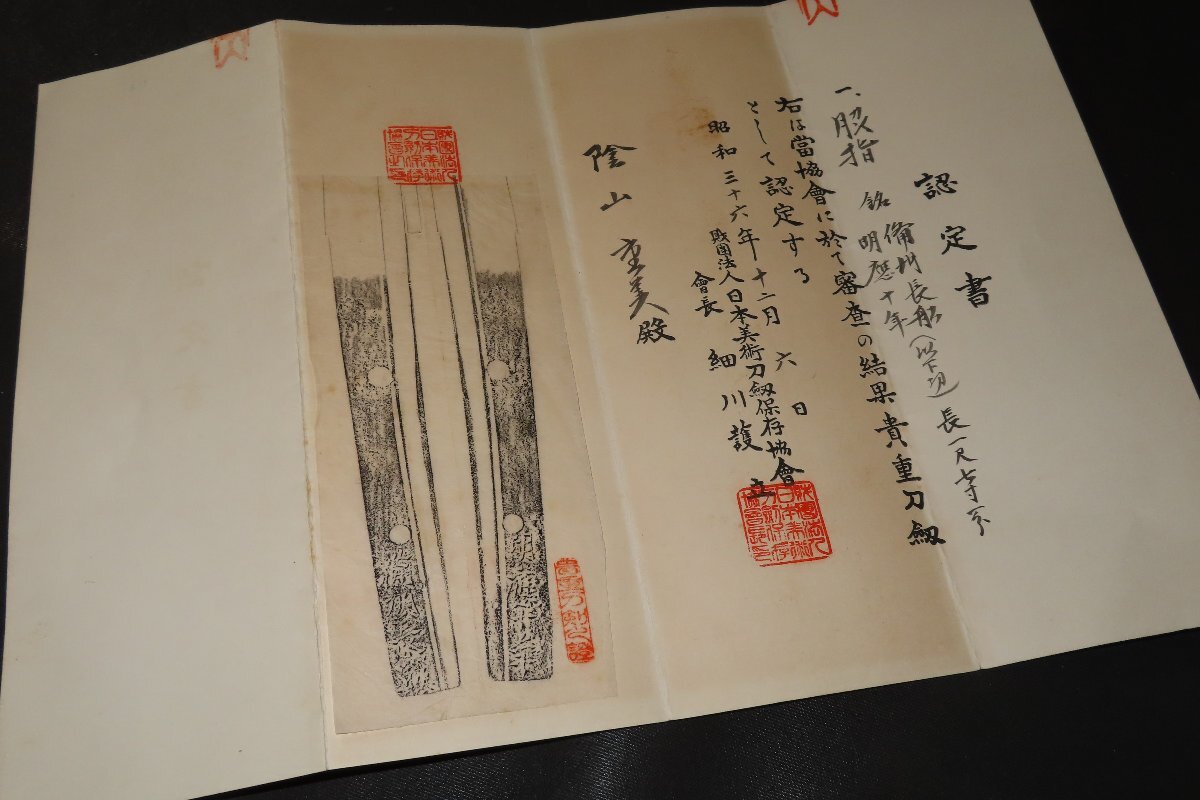 認定書
一、脇指 銘 備州長船(以下切)
明應十年
長一尺寸分
右は當協會に於て審査の結果貴重刀劔
として認定する
昭和三十六年十二月六日
財團法人日本美術刀劔保存協會
會長 細川護立
陰山重美殿